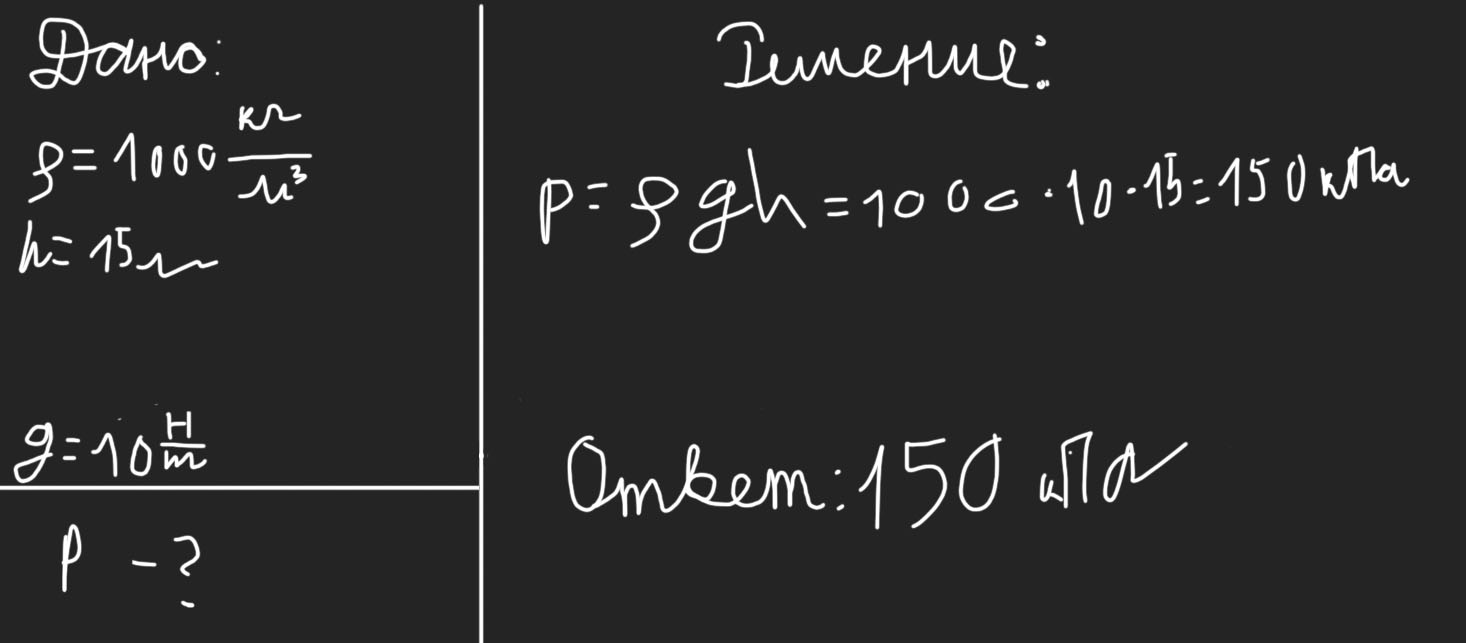 Дано:
ρ = 1000 кг/м³
h = 15 м
g = 10 Н/m
P - ?
Решение:
p = ρgh = 1000 · 10 · 15 = 150 кПа
Ответ: 150 кПа